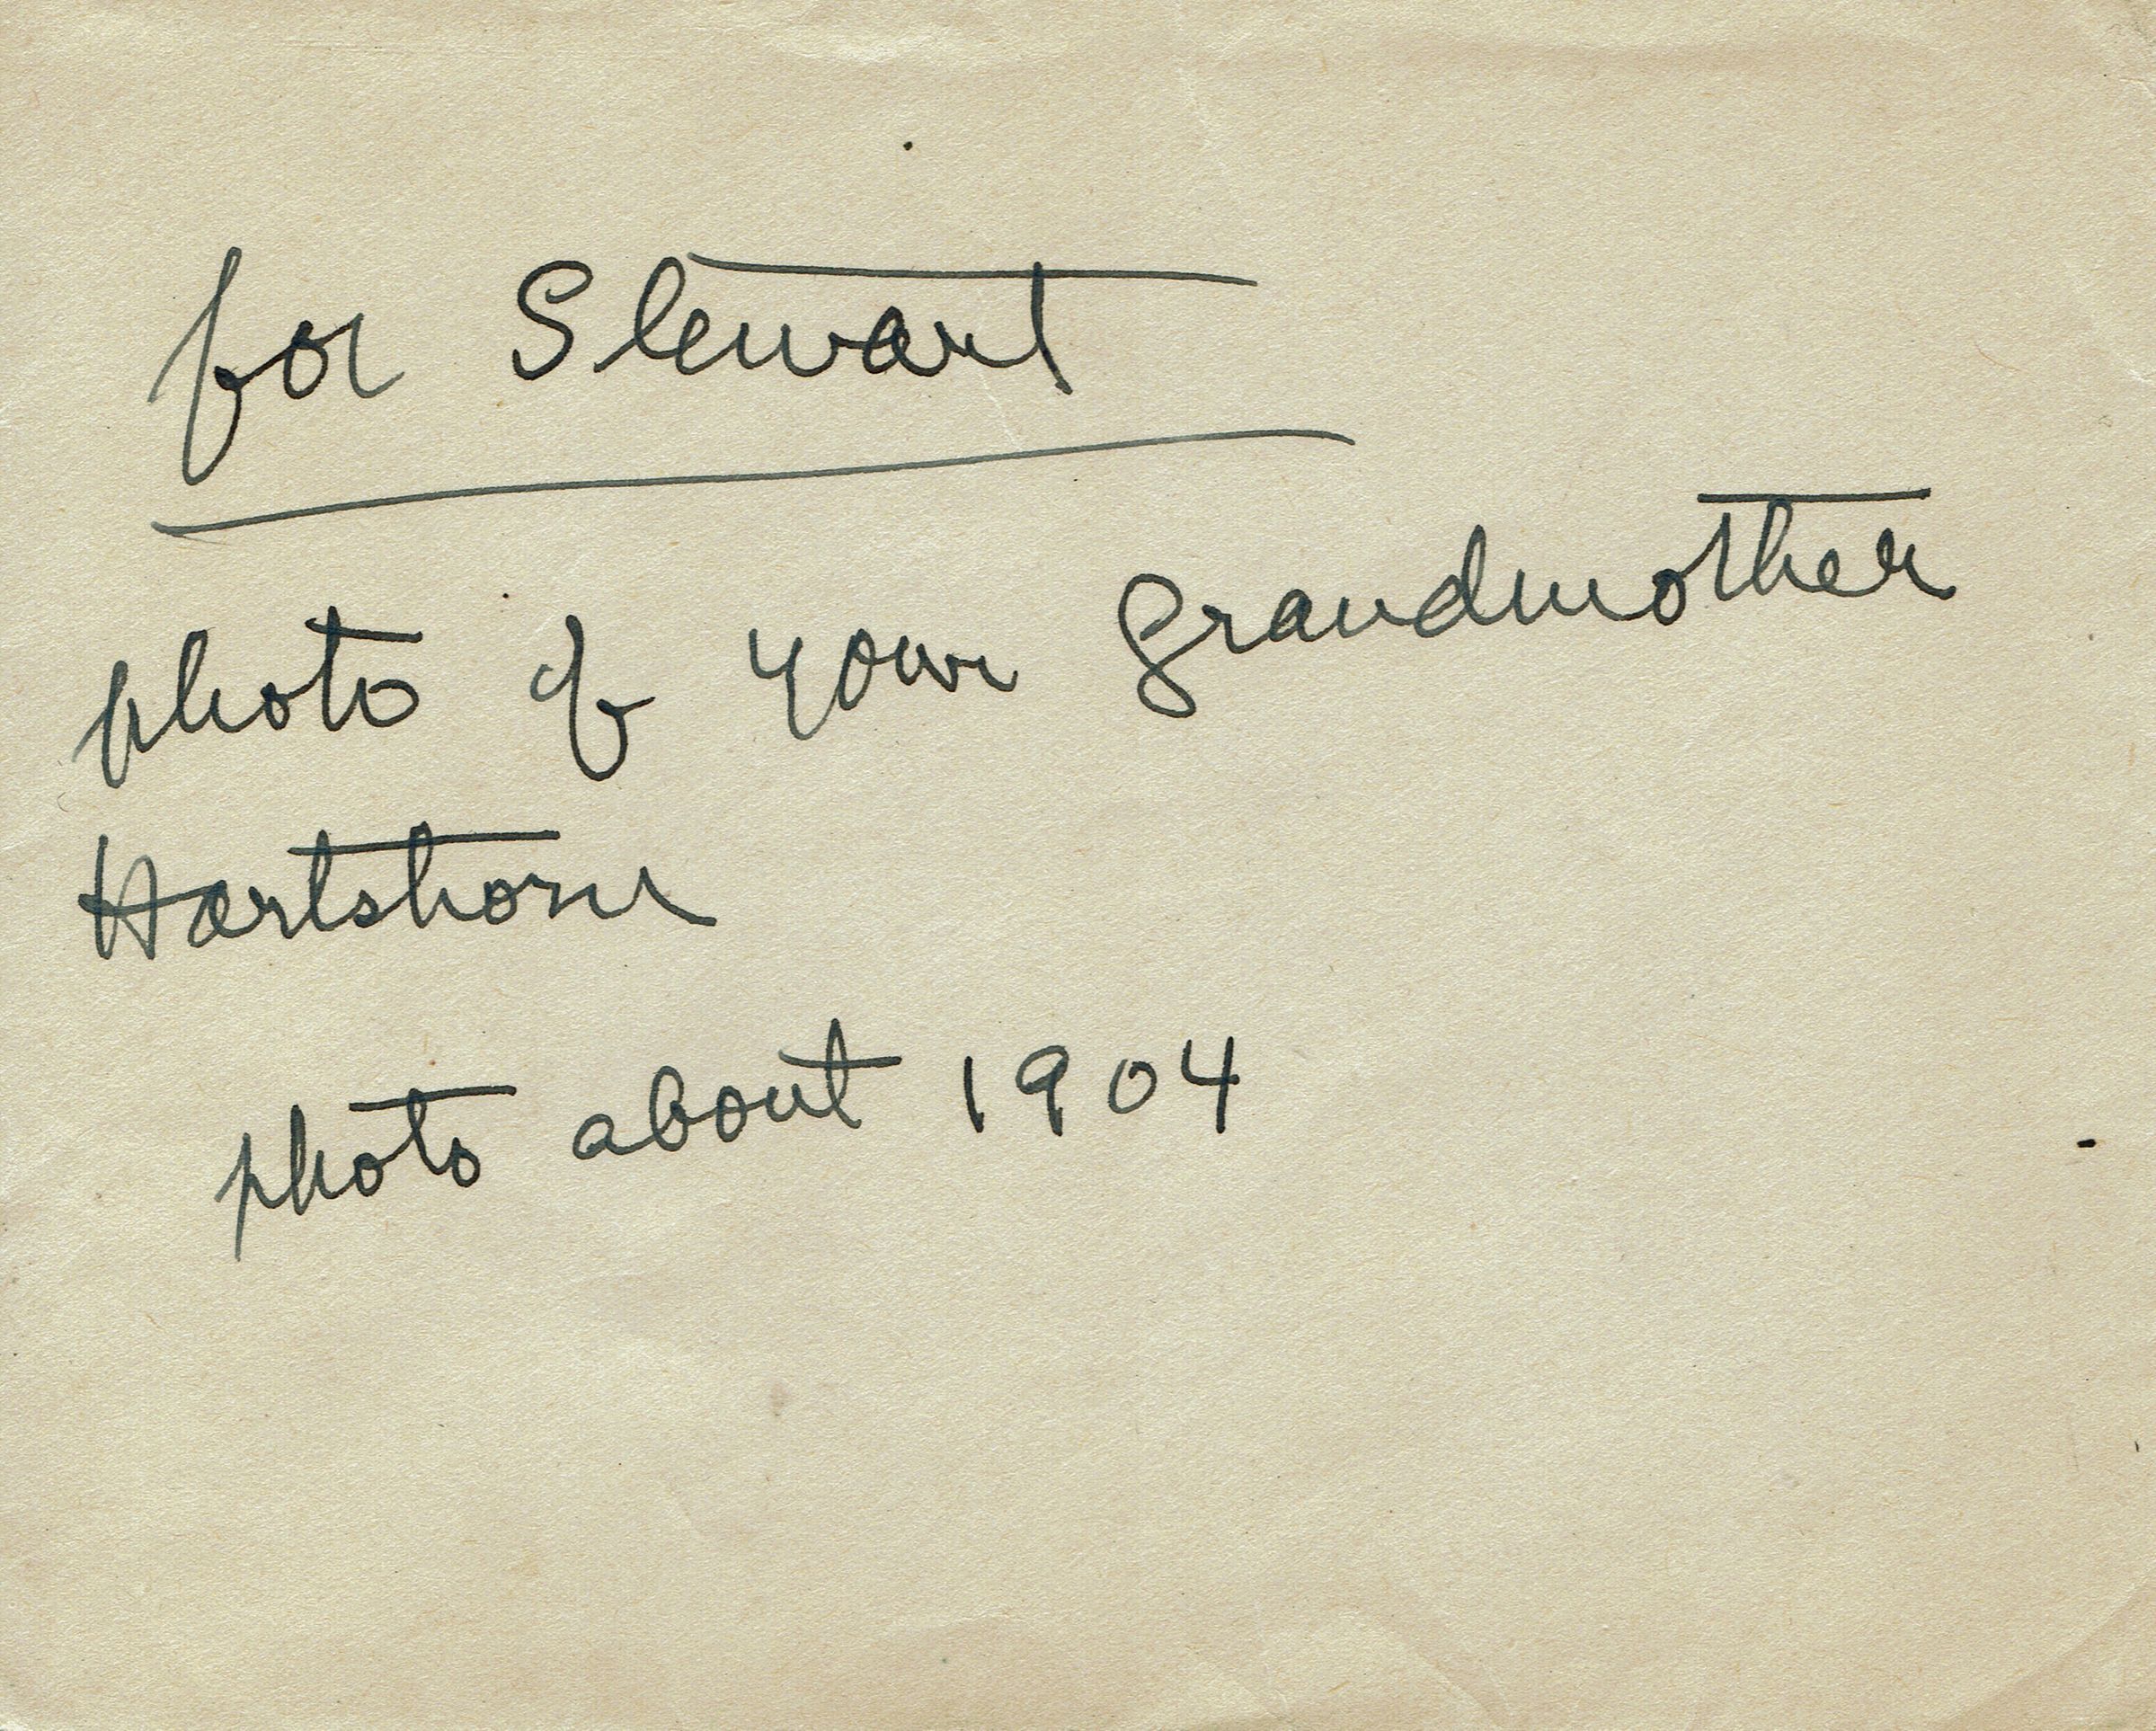 for Stewart
photo of your Grandmother
Hartshorne
photo about 1904